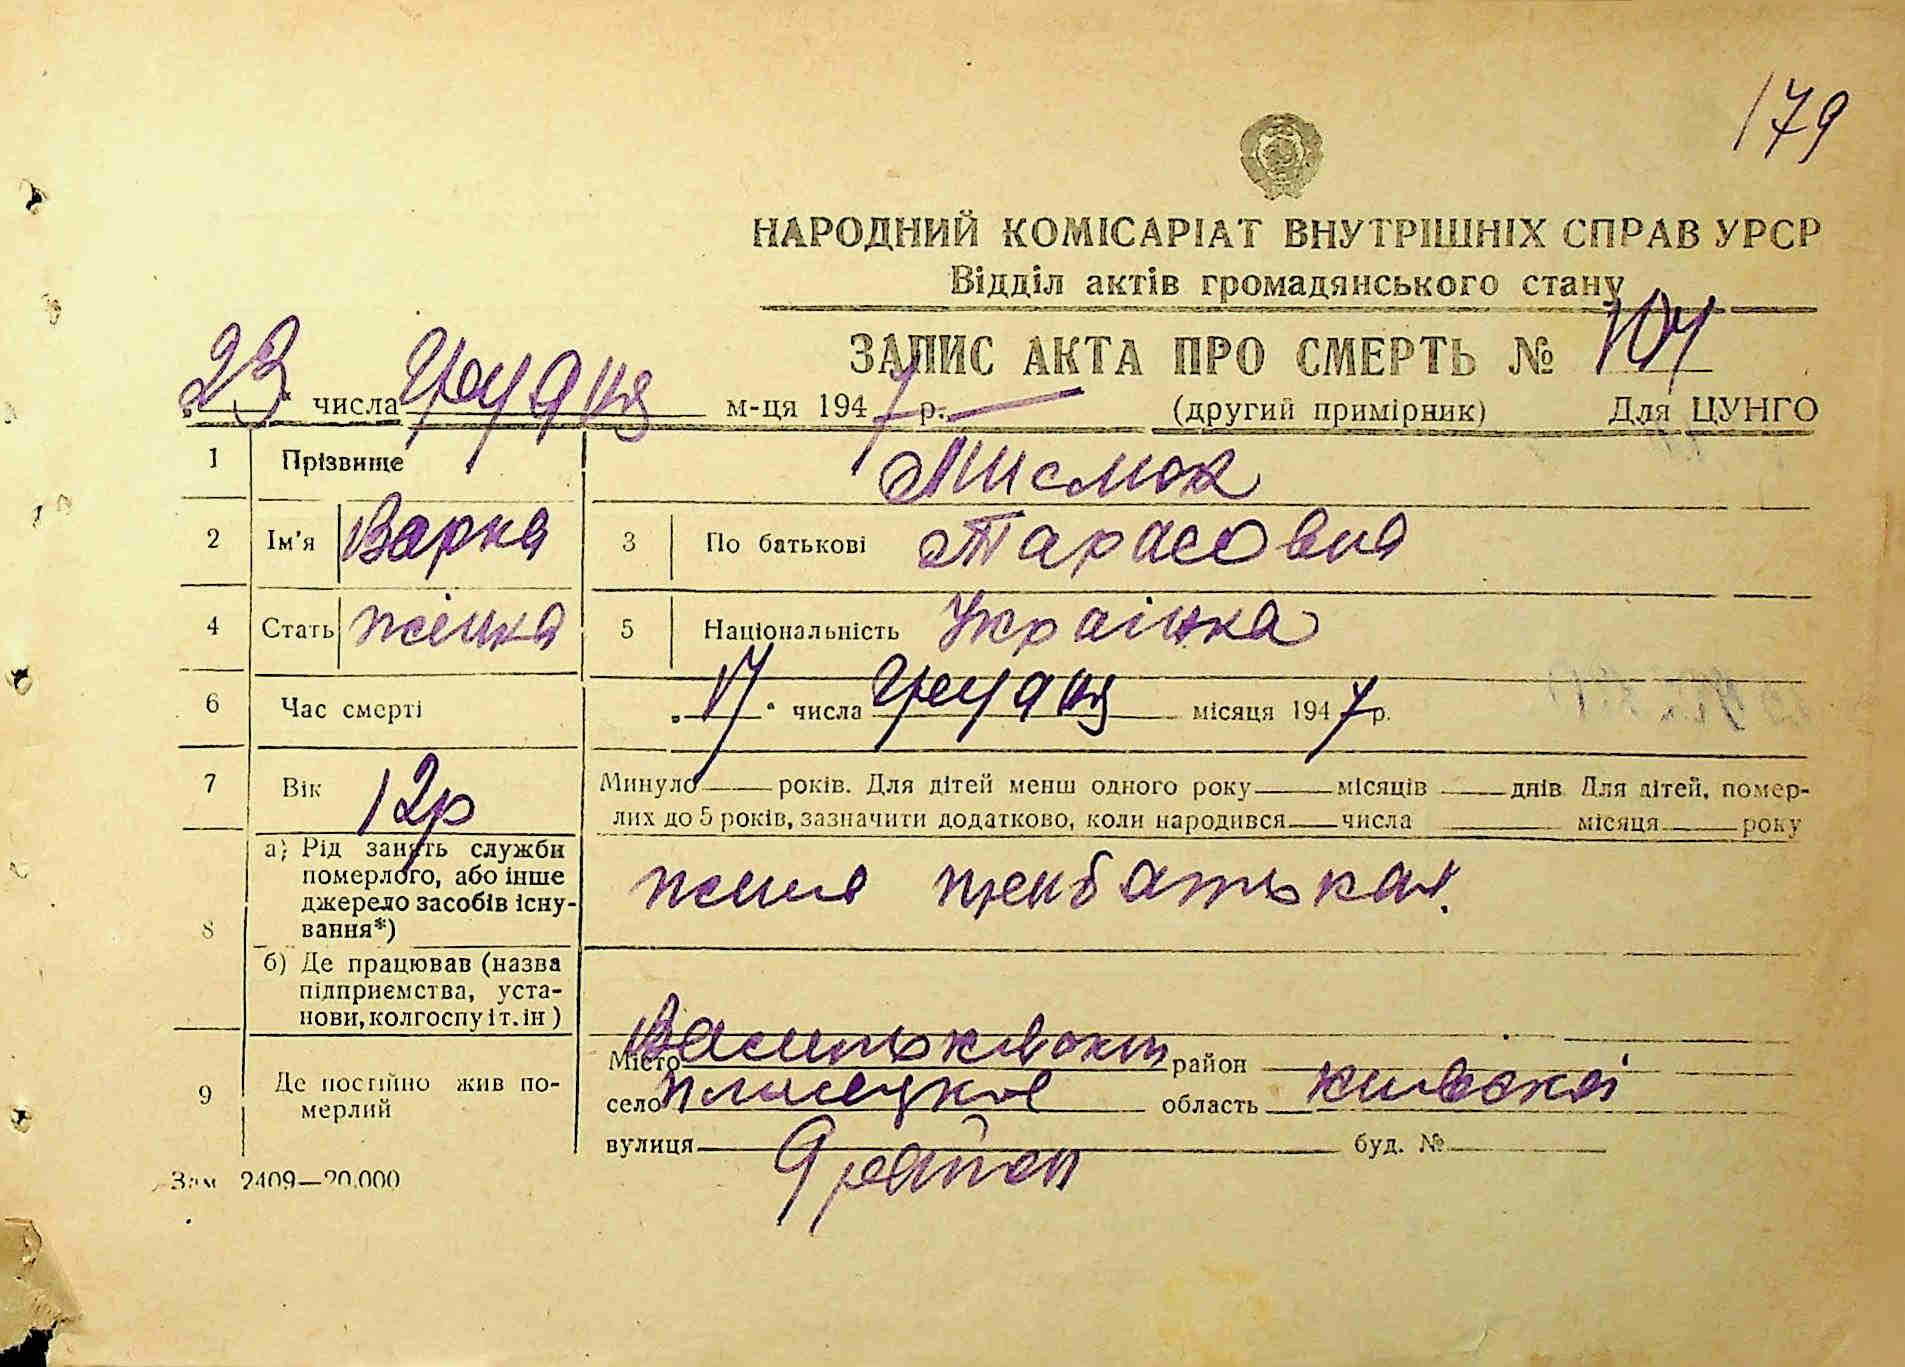 179
НАРОДНИЙ КОМІСАРІАТ ВНУТРІШНІХ СПРАВ УРСР
Відділ актів громадянського стану
ЗАПИС АКТА ПРО СМЕРТЬ № 104
„23“ числа Грудня м-ця 1947 р. (другий примірник) Для ЦУНГО
1 Прізвище Мисмок
2 Ім'я Варка 3 По батькові Тарасовна
4 Стать жінка 5 Національність Українка
6 Час смерті „17“ числа Грудня місяця 1947 р.
7 Вік 12р Минуло років. Для дітей менш одного року місяців днів Для дітей, помер-
лих до 5 років, зазначити додатково, коли народився числа місяця року
8 а) Рід занять служби
померлого, або інше
джерело засобів існу-
вання*)
жила при батьках.
б) Де працював (назва
підприємства, уста-
нови, колгоспу і т. ін)
9 Де постійно жив по-
мерлий
Місто район
село Плисецкое область киевскоі
вулиця буд. №
район
Зам 2409—20.000